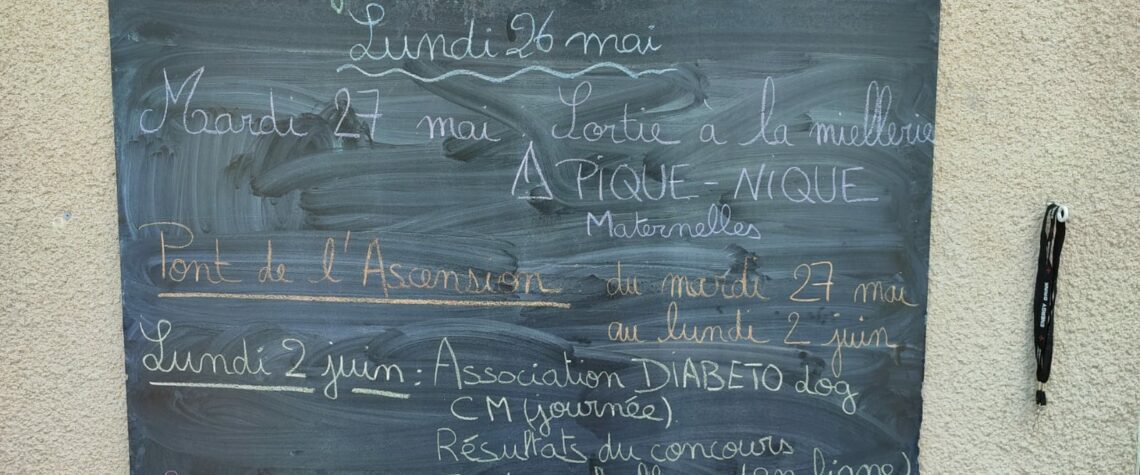 Lundi 26 mai
Mardi 27 mai. Sortie à la miellerie
⚠ PIQUE-NIQUE
Maternelles
Pont de l'Ascension : du mardi 27 mai
au lundi 2 juin
Lundi 2 juin : Association DIABETO dog
CM (journée)
Résultats du concours
ENERGY DRINK